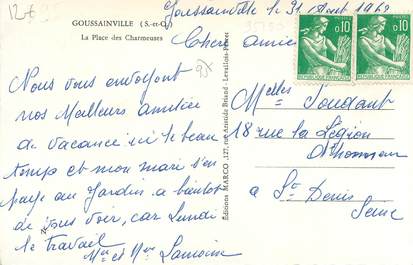 12€
GOUSSAINVILLE (S.-et-O.)
La Place des Charmeuses
Goussainville le 31 Août 1962
Chère amie
0,10 0,10
Nous vous envoyons
nos Meilleurs amitiée
de vacance ici le beau
temps et mon mari s'en
paye au Jardin a bientot
de vous voir, car Lundi
le travail
Mr et Mme Lamoine
Editions MARCO, 127, rue Aristide Briand - Levallois-Perret
Melles Soudant
18 rue la Légion
D'honneur
a St Denis
Seine